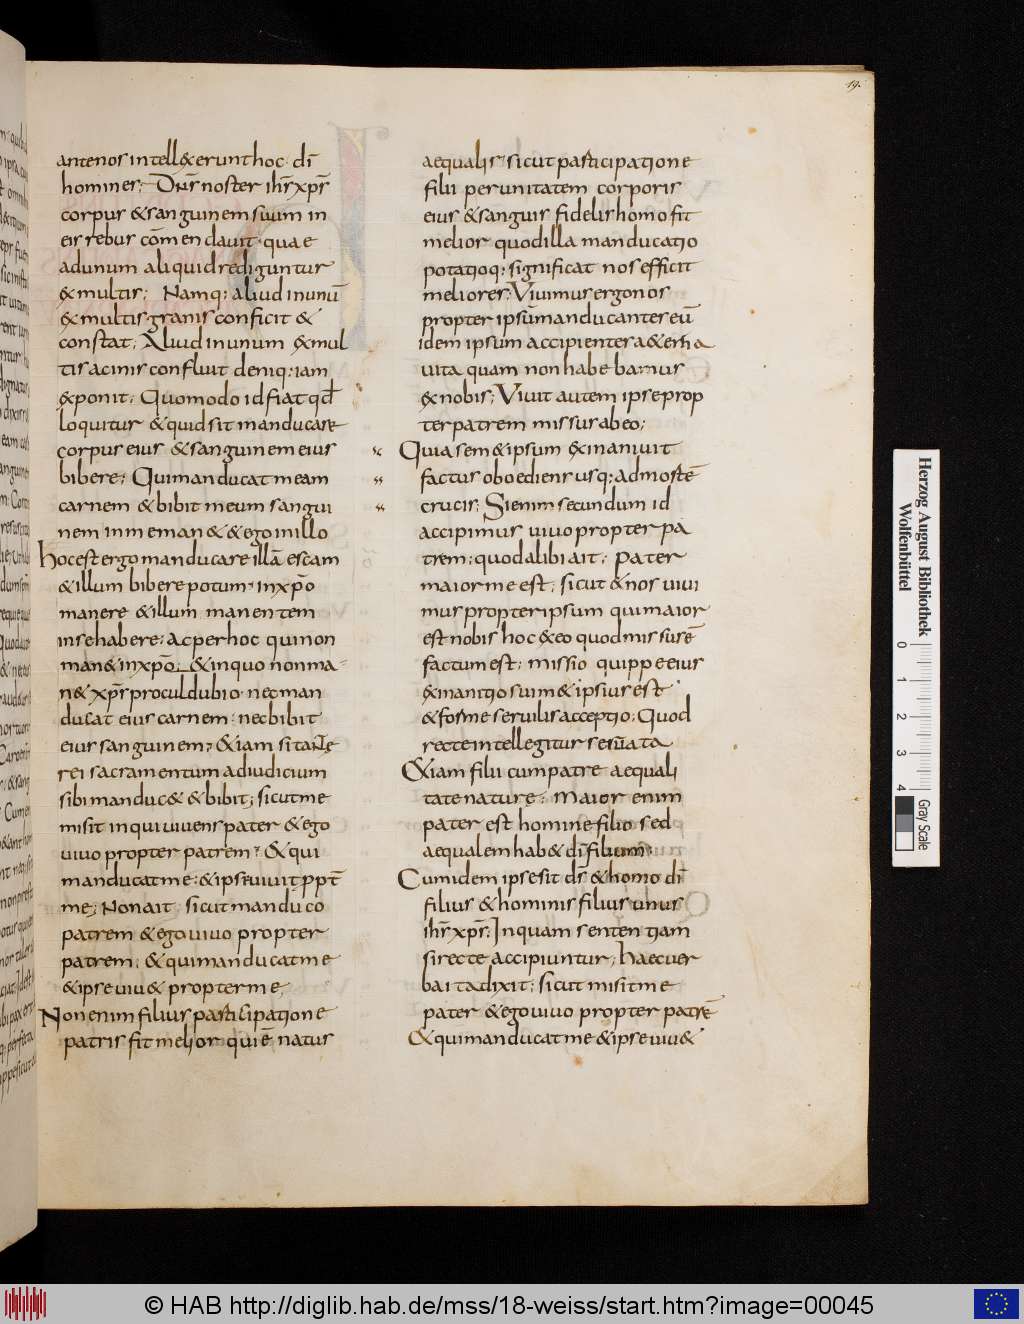 19.
antenos intell&erunt hoc · dī
homines; Dn̄s noster ihs̄ xpr̄s
corpus &sanguinem suum in
eis rebus cōmendauit · quae
adunum aliquid rediguntur
&multis; Namq; aliud inunū
&multis granis conficit &
constat; Aliud inunum &mul
tis acinis confluit deniq; iam
exponit; Quomodo id fiat qđ
loquitur &quid sit manducare
corpus eius &sanguinem eius
bibere; Qui manducat meam
carnem &bibit meum sangui
nem in me man& &ego in illo
hoc est ergo manducare illā escam
&illum bibere potum · inxp̄o
manere &illum manentem
in se habere; ac per hoc qui non
man& inxp̄o; &in quo non ma
n& xps̄ procul dubio · nec man
ducat eius carnem · nec bibit
eius sanguinem; &iam si tantę
rei sacramentum ad iudicium
sibi manduc& &bibit; sicut me
misit in qui uiuens pater &ego
uiuo propter patrem; & qui
manducat me; &ipse uiuit ppt̄
me; Non ait sicut manduco
patrem &ego uiuo propter
patrem; &qui manducat me
&ipse uiu& propter me;
Non enim filius participatione
patris fit melior qui ē natus
aequalis; sicut participatione
filii per unitatem corporis
eius &sanguis fidelis homo fit
melior quod illa manducatio
potatioq; significat nos efficit
meliores; Viuimus ergo nos
propter ipsum manducantes eū
idem ipsum accipientes aeterna
uita quam non habebamus
ex nobis; Viuit autem ipse prop
ter patrem missus ab eo;
Quia sem&ipsum exinaniuit
factus oboediens usq; ad mortē
crucis; Si enim secundum id
accipimus uiuo propter pa
trem; quod alibi ait; Pater
maior me est; sicut &nos uiui
mus propter ipsum qui maior
est nobis hoc ex eo quod missus ē
factum est; missio quippe eius
exinanitio suim&ipsius est
&forme seruilis acceptio; Quod
recte intellegitur seruata
&iam filii cum patre aequali
tate naturę; Maior enim
pater est homine filio sed
aequalem hab& dī filium;
Cum idem ipse sit ds̄ &homo dī
filius &hominis filius unus
ihs̄ xps̄; In quam sententiam
si recte accipiuntur; haec uer
ba ita dixit; sicut misit me
pater &ego uiuo propter patrē
&qui manducat me &ipse uiu&
Herzog August Bibliothek
Wolfenbüttel
0 1 2 3 4
Gray Scale
© HAB http://diglib.hab.de/mss/18-weiss/start.htm?image=00045